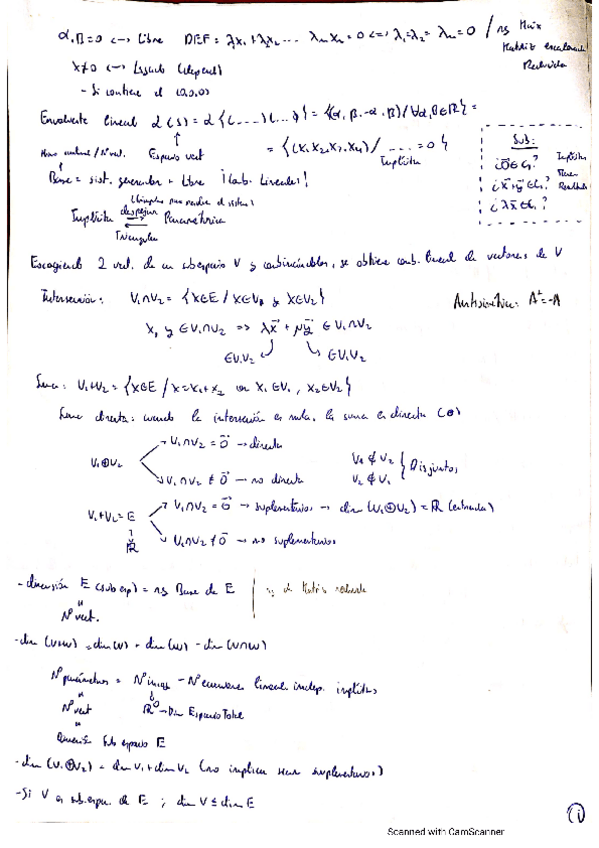 α, β = 0 <-> Libre DEF = λx₁ + λx₂ ... λₙxₙ = 0 <=> λ₁ = λ₂ = λₙ = 0 / rg Máx
Matriz escalonada
Reducida
x ≠ 0 <-> Ligado (depend)
- Si contiene el (0,0,0)
Envolvente lineal L(S) = L{(----)(...)} = {(α, β, -α, β) / ∀α, β ∈ ℝ} =
= {(x₁ x₂, x₃, x₄) / .... = 0}
Implícita
Espacio vect
Base = sist. generador + Libre ¡(comb. Lineales)!
Sub:
¿0̄ ∈ G?
¿x̄+ȳ ∈ G?
¿λx̄ ∈ G?
Implícita despejar Paramétrica
Triangular
Escogiendo 2 vect. de un subespacio V y combinándolos, se obtiene comb. lineal de vectores de V
Intersección: V₁∩V₂ = {x∈E / x∈V₁ y x∈V₂}
Antisimétrica: Aᵗ=-A
x, y ∈ V₁∩V₂ => λx̄ + μȳ ∈ V₁∩V₂
∈V₁V₂ ∈V₁V₂
Suma: V₁+V₂ = {x∈E / x=x₁+x₂ con x₁∈V₁, x₂∈V₂}
Suma directa: cuando la intersección es nula, la suma es directa (⊕)
V₁⊕V₂
V₁∩V₂ = 0̄ → directa
V₁∩V₂ ≠ 0̄ → no directa
V₁ ⊄ V₂
V₂ ⊄ V₁
Disjuntos
V₁+V₂ = E
ℝ
V₁∩V₂ = 0̄ → suplementarios → dim (V₁⊕V₂) = ℝ
V₁∩V₂ ≠ 0̄ → no suplementarios
- dimensión E (sub esp) = rg Base de E | rg de Matriz reducida
Nº vect.
- dim (V+W) = dim(V) + dim(W) - dim(V∩W)
Nº parámetros = Nº incog - Nº ecuaciones lineal. indep. implícitas
Nº vect
ℝ⁰ → Dim Espacio Total
Dimensión Sub espacio E
- dim (V₁⊕V₂) = dim V₁ + dim V₂ (no implica sean suplementarios)
- Si V es subespa. de E ; dim V ≤ dim E
1
Scanned with CamScanner